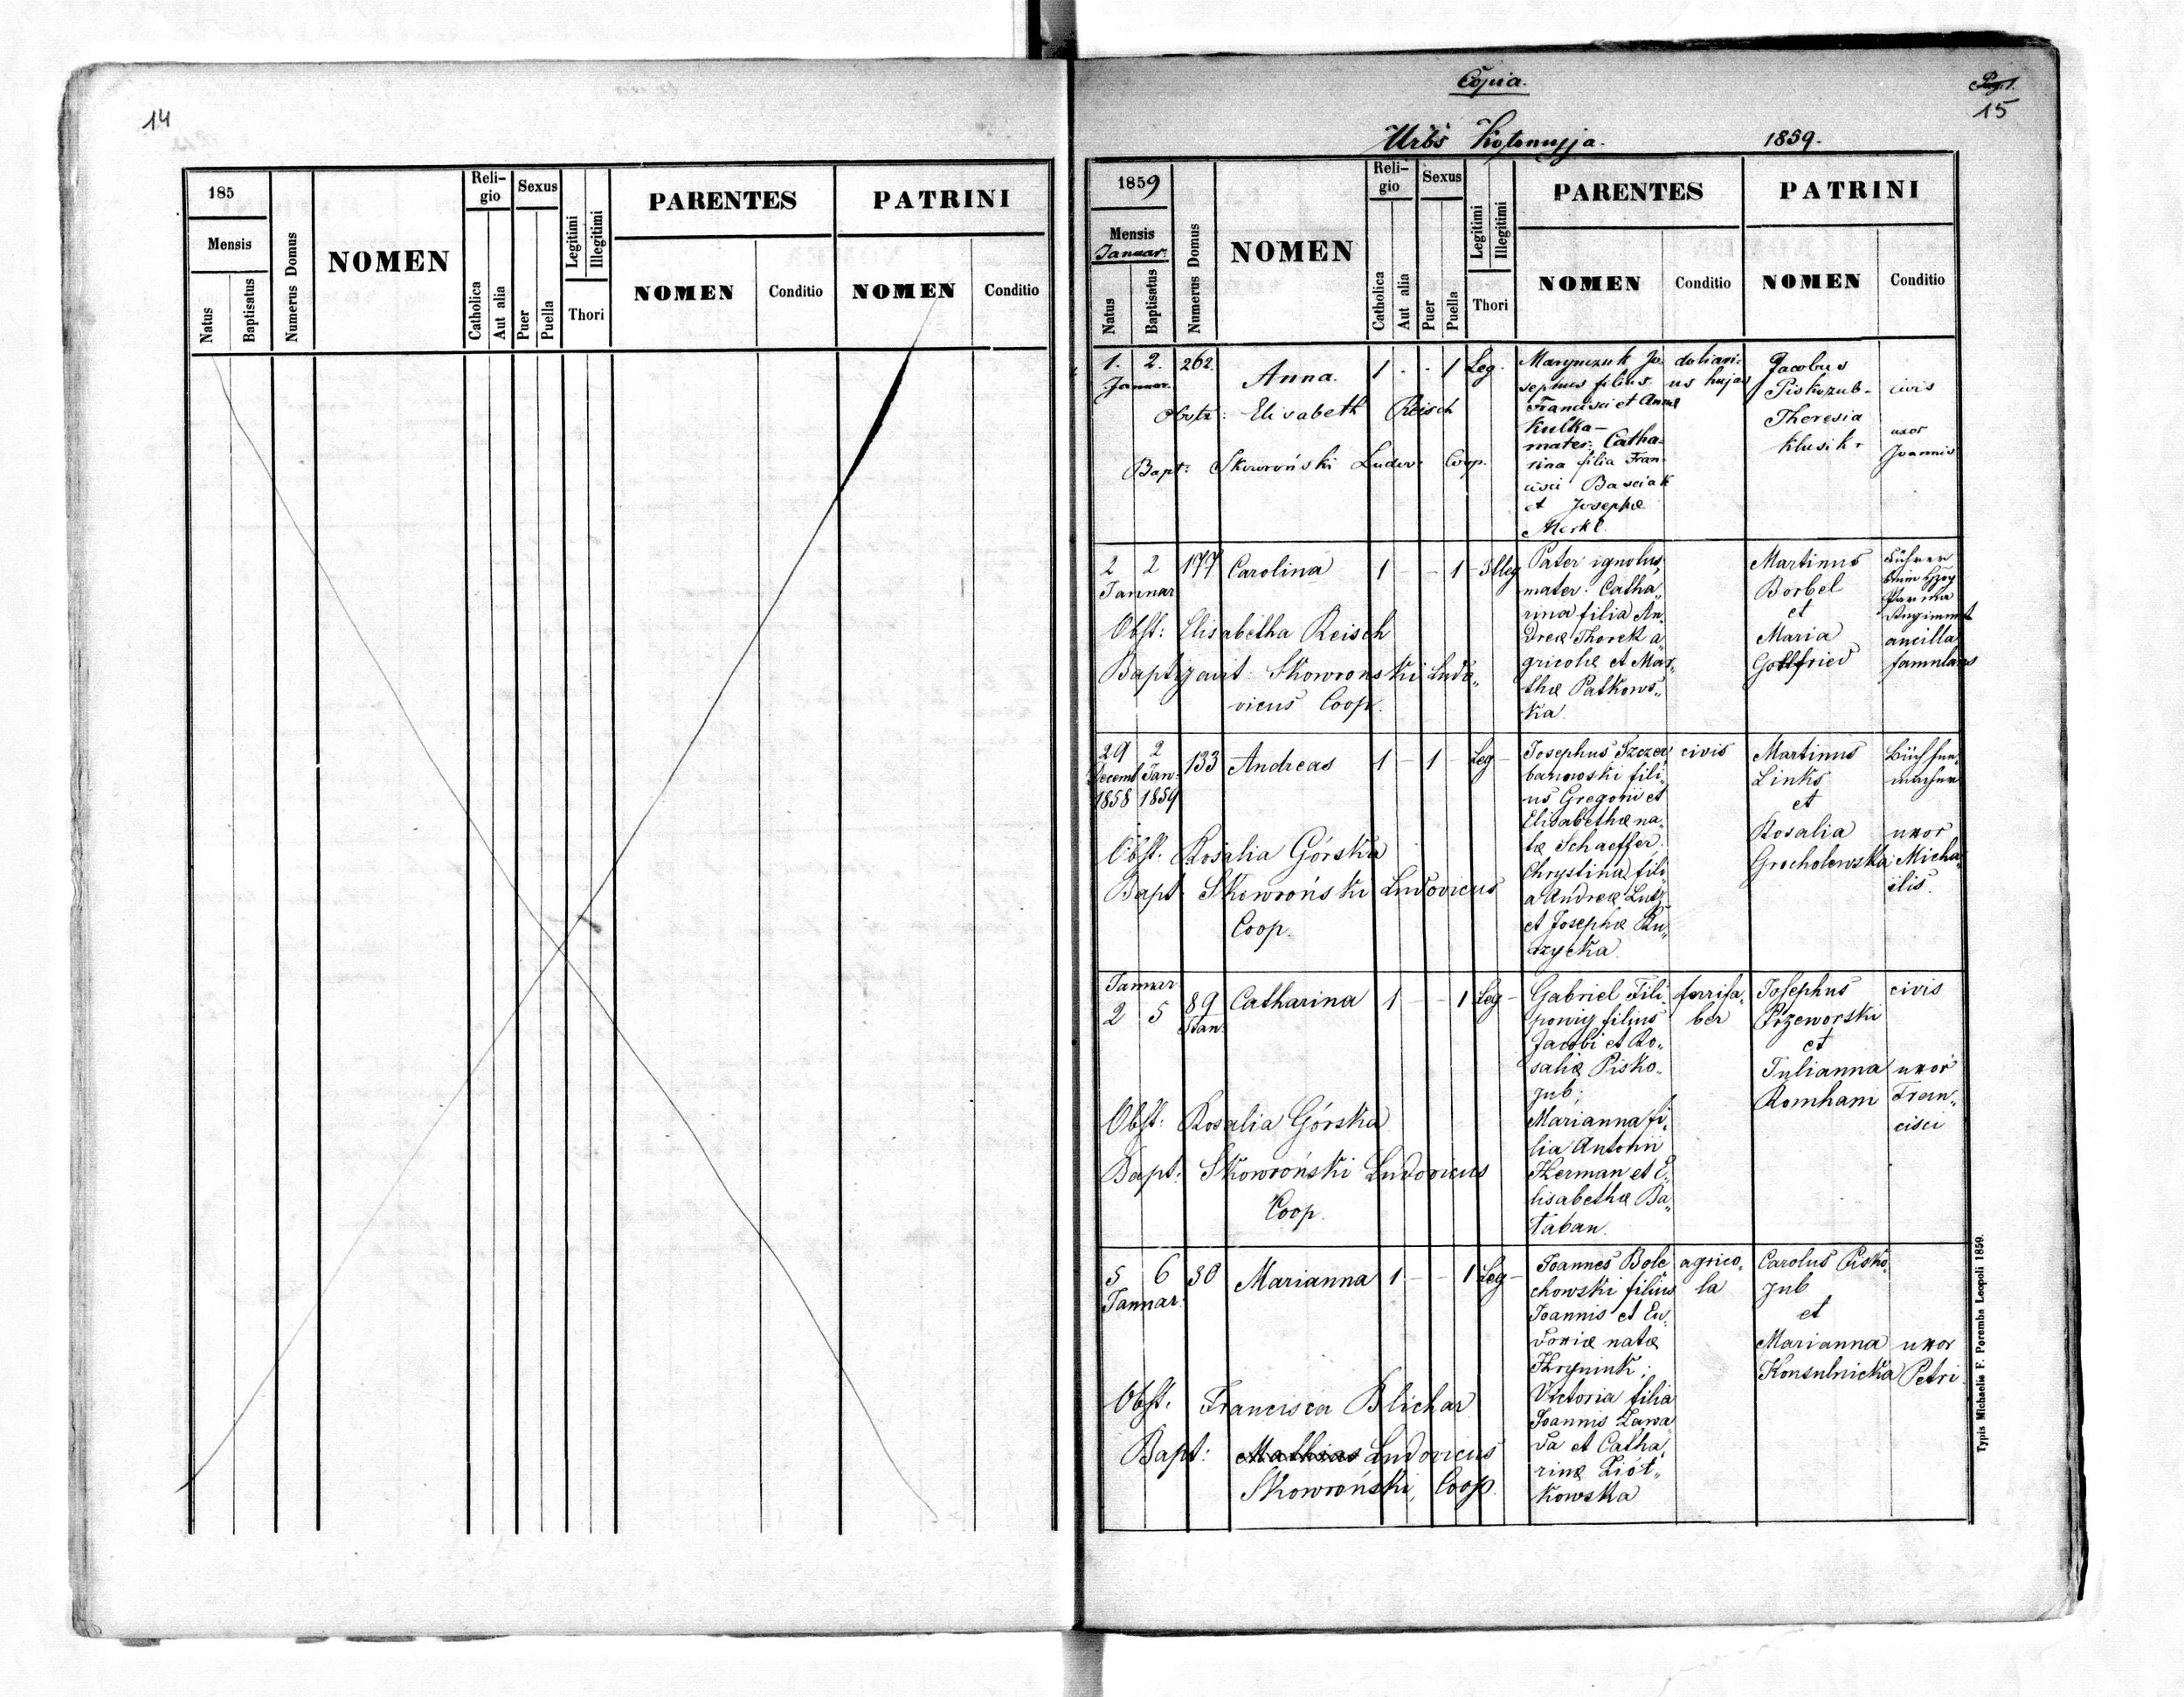 14
185
Mensis
Natus
Baptisatus
Numerus Domus
NOMEN
Reli-
gio
Catholica
Aut alia
Sexus
Puer
Puella
Legitimi
Illegitimi
Thori
PARENTES
NOMEN
Conditio
PATRINI
NOMEN
Conditio
Copia.
Pag. 1.
15
Urbs Kołomyja. 1859.
1859
Mensis
Januar.
Natus
Baptisatus
Numerus Domus
NOMEN
Reli-
gio
Catholica
Aut alia
Sexus
Puer
Puella
Legitimi
Illegitimi
Thori
PARENTES
NOMEN
Conditio
PATRINI
NOMEN
Conditio
1. 2. 262.
Januar.
Anna.
1 . . 1 Leg.
Obstr: Elisabeth Reisch
Bapt: Skowroński Ludov: Coop.
Marynczuk Jo-
sephus filius
Francisci et Annæ
Kulka –
mater: Catha-
rina filia Fran-
cisci Basciak
et Josephæ
Merkl.
doliari-
us hujas
Jacobus
Piskozub -
Theresia
Klusik -
civis
uxor
Joannis
2 2 177 Carolina 1 - - 1 - Illeg
Januar
Obst: Elisabetha Reisch
Baptyzavit: Skowronski Ludo„
vicus Coop.
Pater ignotus,
mater: Catha„
rina filia An„
dreæ Thorek a„
gricolæ et Mar„
thæ Patkows„
ka.
Martinus
Borbel
et
Maria
Gottfried
Führer
beim Hzog
Parma
Regiment
ancilla
famulans
29 2 133 Andreas 1 - 1 - Leg -
Decemb Jan:
1858 1859
Obst: Rosalia Górska
Bapt: Skowroński Ludovicus
Coop.
Josephus Szczer„
banowski fili„
us Gregorii et
Elisabethæ na„
tæ Schaeffer.
Chrystina fili„
a Andreæ Lutz
et Josephæ Ru„
dzycka.
civis
Martinus
Links
et
Rosalia
Grocholewska
Büchsen„
macher
uxor
Micha„
ëlis.
Januar
2 5 89 Catharina 1 - - 1 Leg -
Stan:
Obst: Rosalia Górska
Bapt: Skowroński Ludovicus
Coop.
Gabriel Fili„
powiz filius
Jacobi et Ro„
saliæ Pisko„
zub;
Marianna fi„
lia Antonii
Herman et E„
lisabethæ Ba„
łaban.
ferrifa„
ber
Josephus
Przeworski
et
Julianna
Romham
civis
uxor
Fran„
cisci
5 6 30 Marianna 1 - - 1 Leg -
Januar.
Obst. Francisca Blichar
Bapt: Mathias Ludovicus
Skowroński, Coop.
Joannes Bole
chowski filius
Joannis et Eu„
doxiæ natæ
Hryniuk;
Victoria filia
Joannis Zawa
da et Catha„
rinæ Ziół„
kowska
agrico„
la
Carolus Pisko„
zub
et
Marianna
Konsulnicka
uxor
Petri
Typis Michaelis F. Poremba Leopoli 1859.